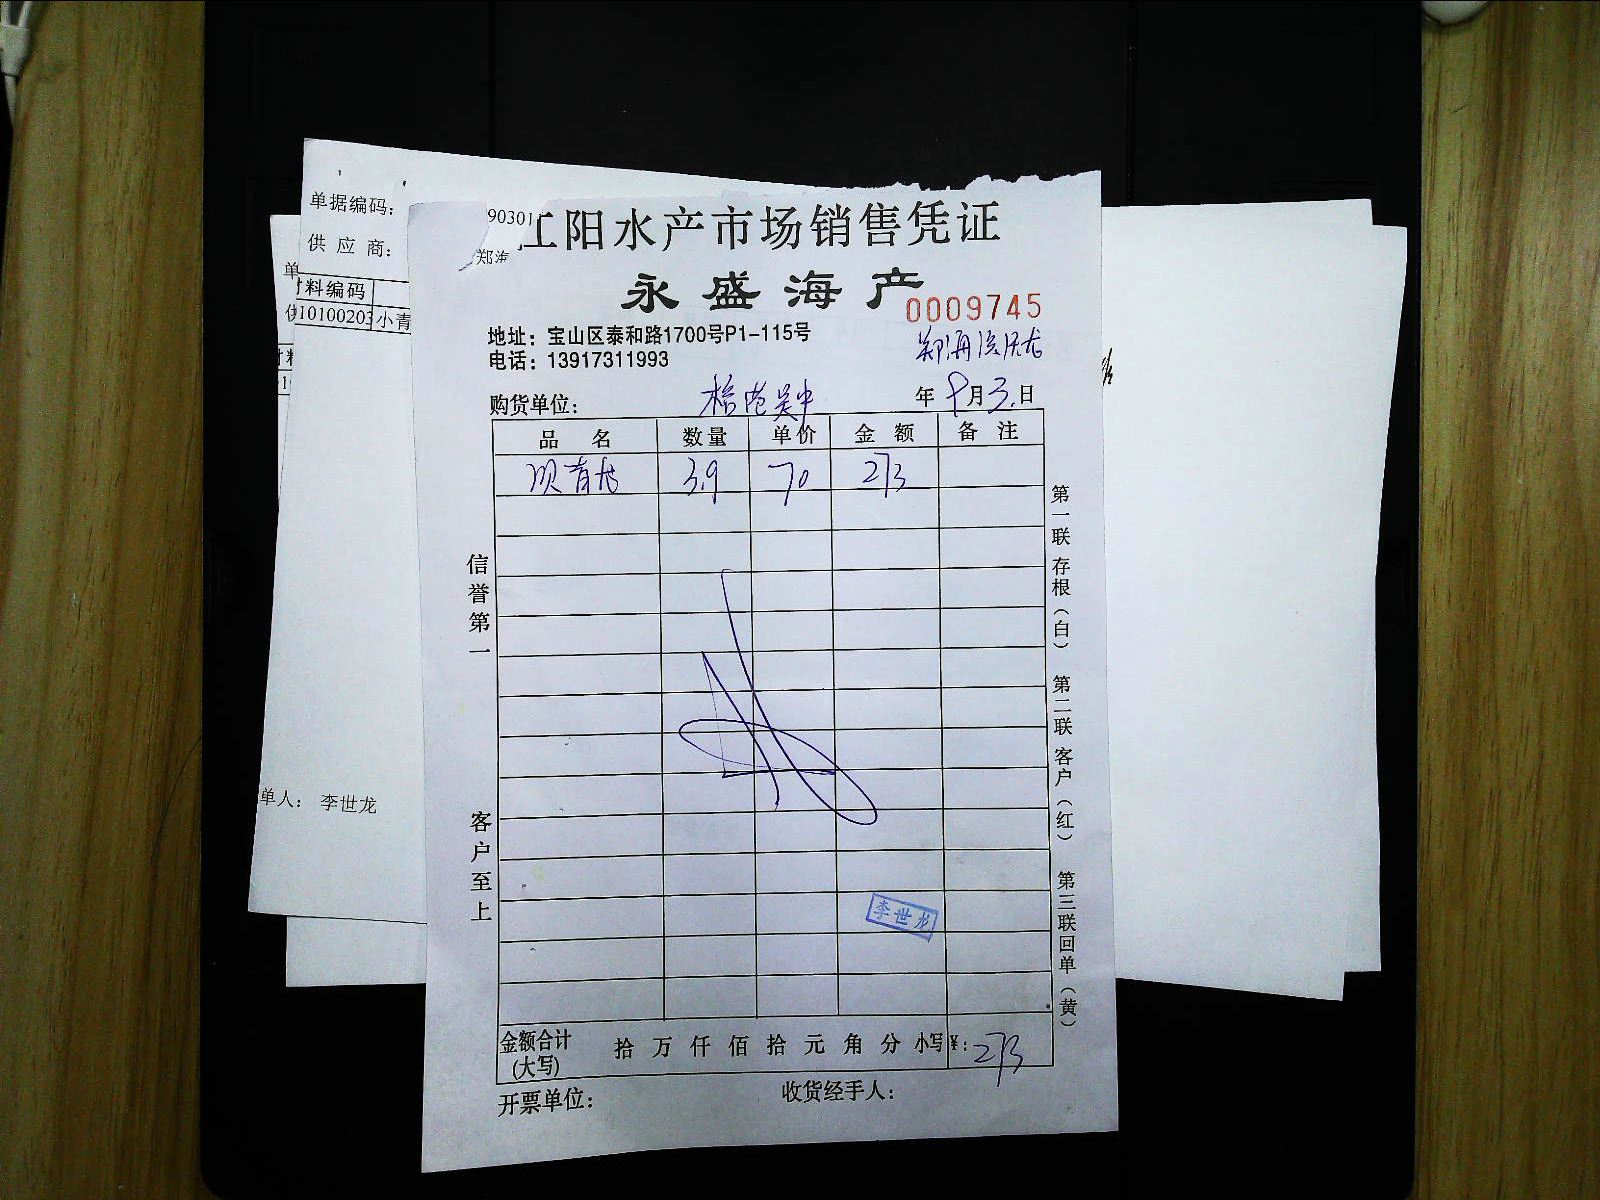 单据编码：
90301
江阳水产市场销售凭证
供应商：
郑海
永盛海产
0009745
材料编码
10100203 小青
地址：宝山区泰和路1700号P1-115号
电话：13917311993
购货单位：
年 9月3日
品名 数量 单价 金额 备注
3.9 70 273
信誉第一
客户至上
第一联存根（白）
第二联客户（红）
第三联回单（黄）
单人： 李世龙
李世龙
金额合计（大写） 拾 万 仟 佰 拾 元 角 分 小写¥：273
开票单位：
收货经手人：